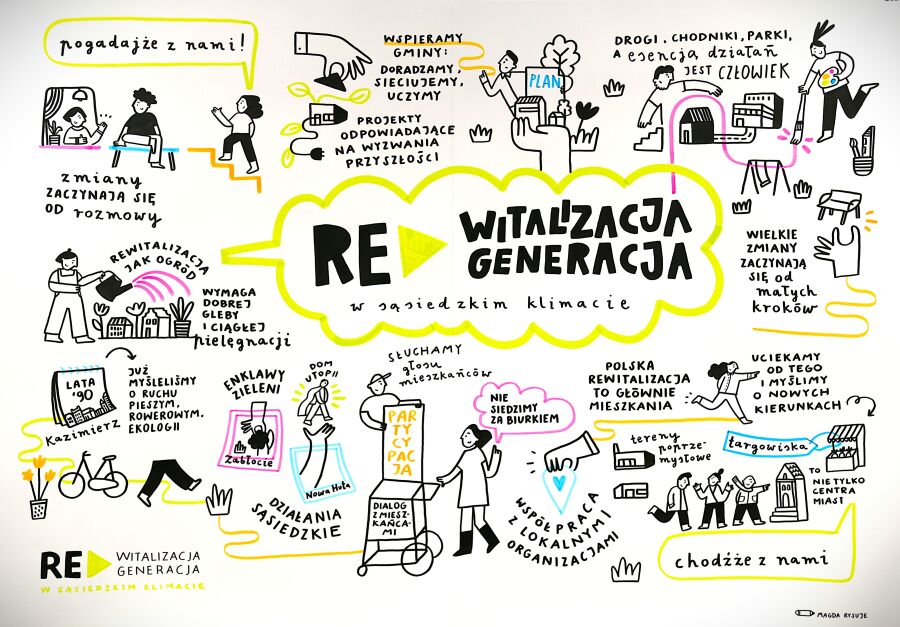 pogadajże z nami!
zmiany
ZACZYNAJĄ SIĘ
OD rozmowy
WSPIERAMY
GMINY:
DORADZAMY,
SIECIUJEMY,
UCZYMY
PROJEKTY
ODPOWIADAJĄCE
NA WYZWANIA
PRZYSZŁOŚCI
PLAN
DROGI, CHODNIKI, PARKI,
A esencją działań
JEST CZŁOWIEK
RE WITALIZACJA
GENERACJA
w sąsiedzkim klimacie
WIELKIE
ZMIANY
ZACZYNAJĄ
SIĘ od
małych
kroków
REWITALIZACJA
JAK OGRÓD
WYMAGA
DOBREJ
GLEBY
I CIĄGŁEJ
pielęgnacji
LATA
'90
Kazimierz
JUŻ
MYŚLELIŚMY
O RUCHU
PIESZYM,
ROWEROWYM,
EKOLOGII
ENKLAWY
ZIELENI
Zabłocie
DOM
UTOPII
Nowa Huta
DZIAŁANIA
SĄSIEDZKIE
SŁUCHAMY
głosu
mieszkańców
PAR
TY
CY
PAC
JA
DIALOG
Z MIESZ-
KAŃCA-
MI
NIE
SIEDZIMY
ZA BIURKIEM
WSPÓŁPRACA
Z LOKALNYMI
ORGANIZACJAMI
POLSKA
REWITALIZACJA
TO GŁÓWNIE
MIESZKANIA
UCIEKAMY
OD TEGO
I MYŚLIMY
O NOWYCH
KIERUNKACH
tereny
poprze-
mysłowe
targowiska
TO
NIE TYLKO
CENTRA
MIAST
chodźże z nami
RE WITALIZACJA
GENERACJA
W SĄSIEDZKIM KLIMACIE
MAGDA RYSUJE